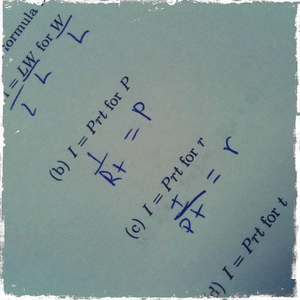 formula
= LW for W
L L L
(b) I = Prt for P
I/Rt = P
(c) I = Prt for r
I/Pt = r
(d) I = Prt for t